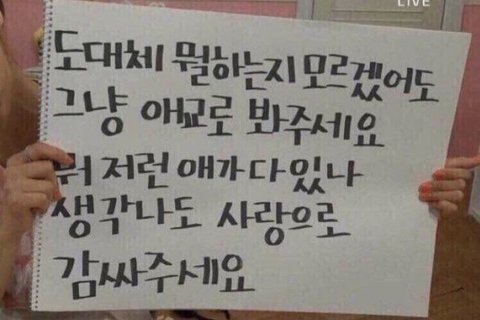 LIVE
도대체 뭘하는지 모르겠어도
그냥 애교로 봐주세요
뭐 저런 애가 다 있나
생각나도 사랑으로
감싸주세요